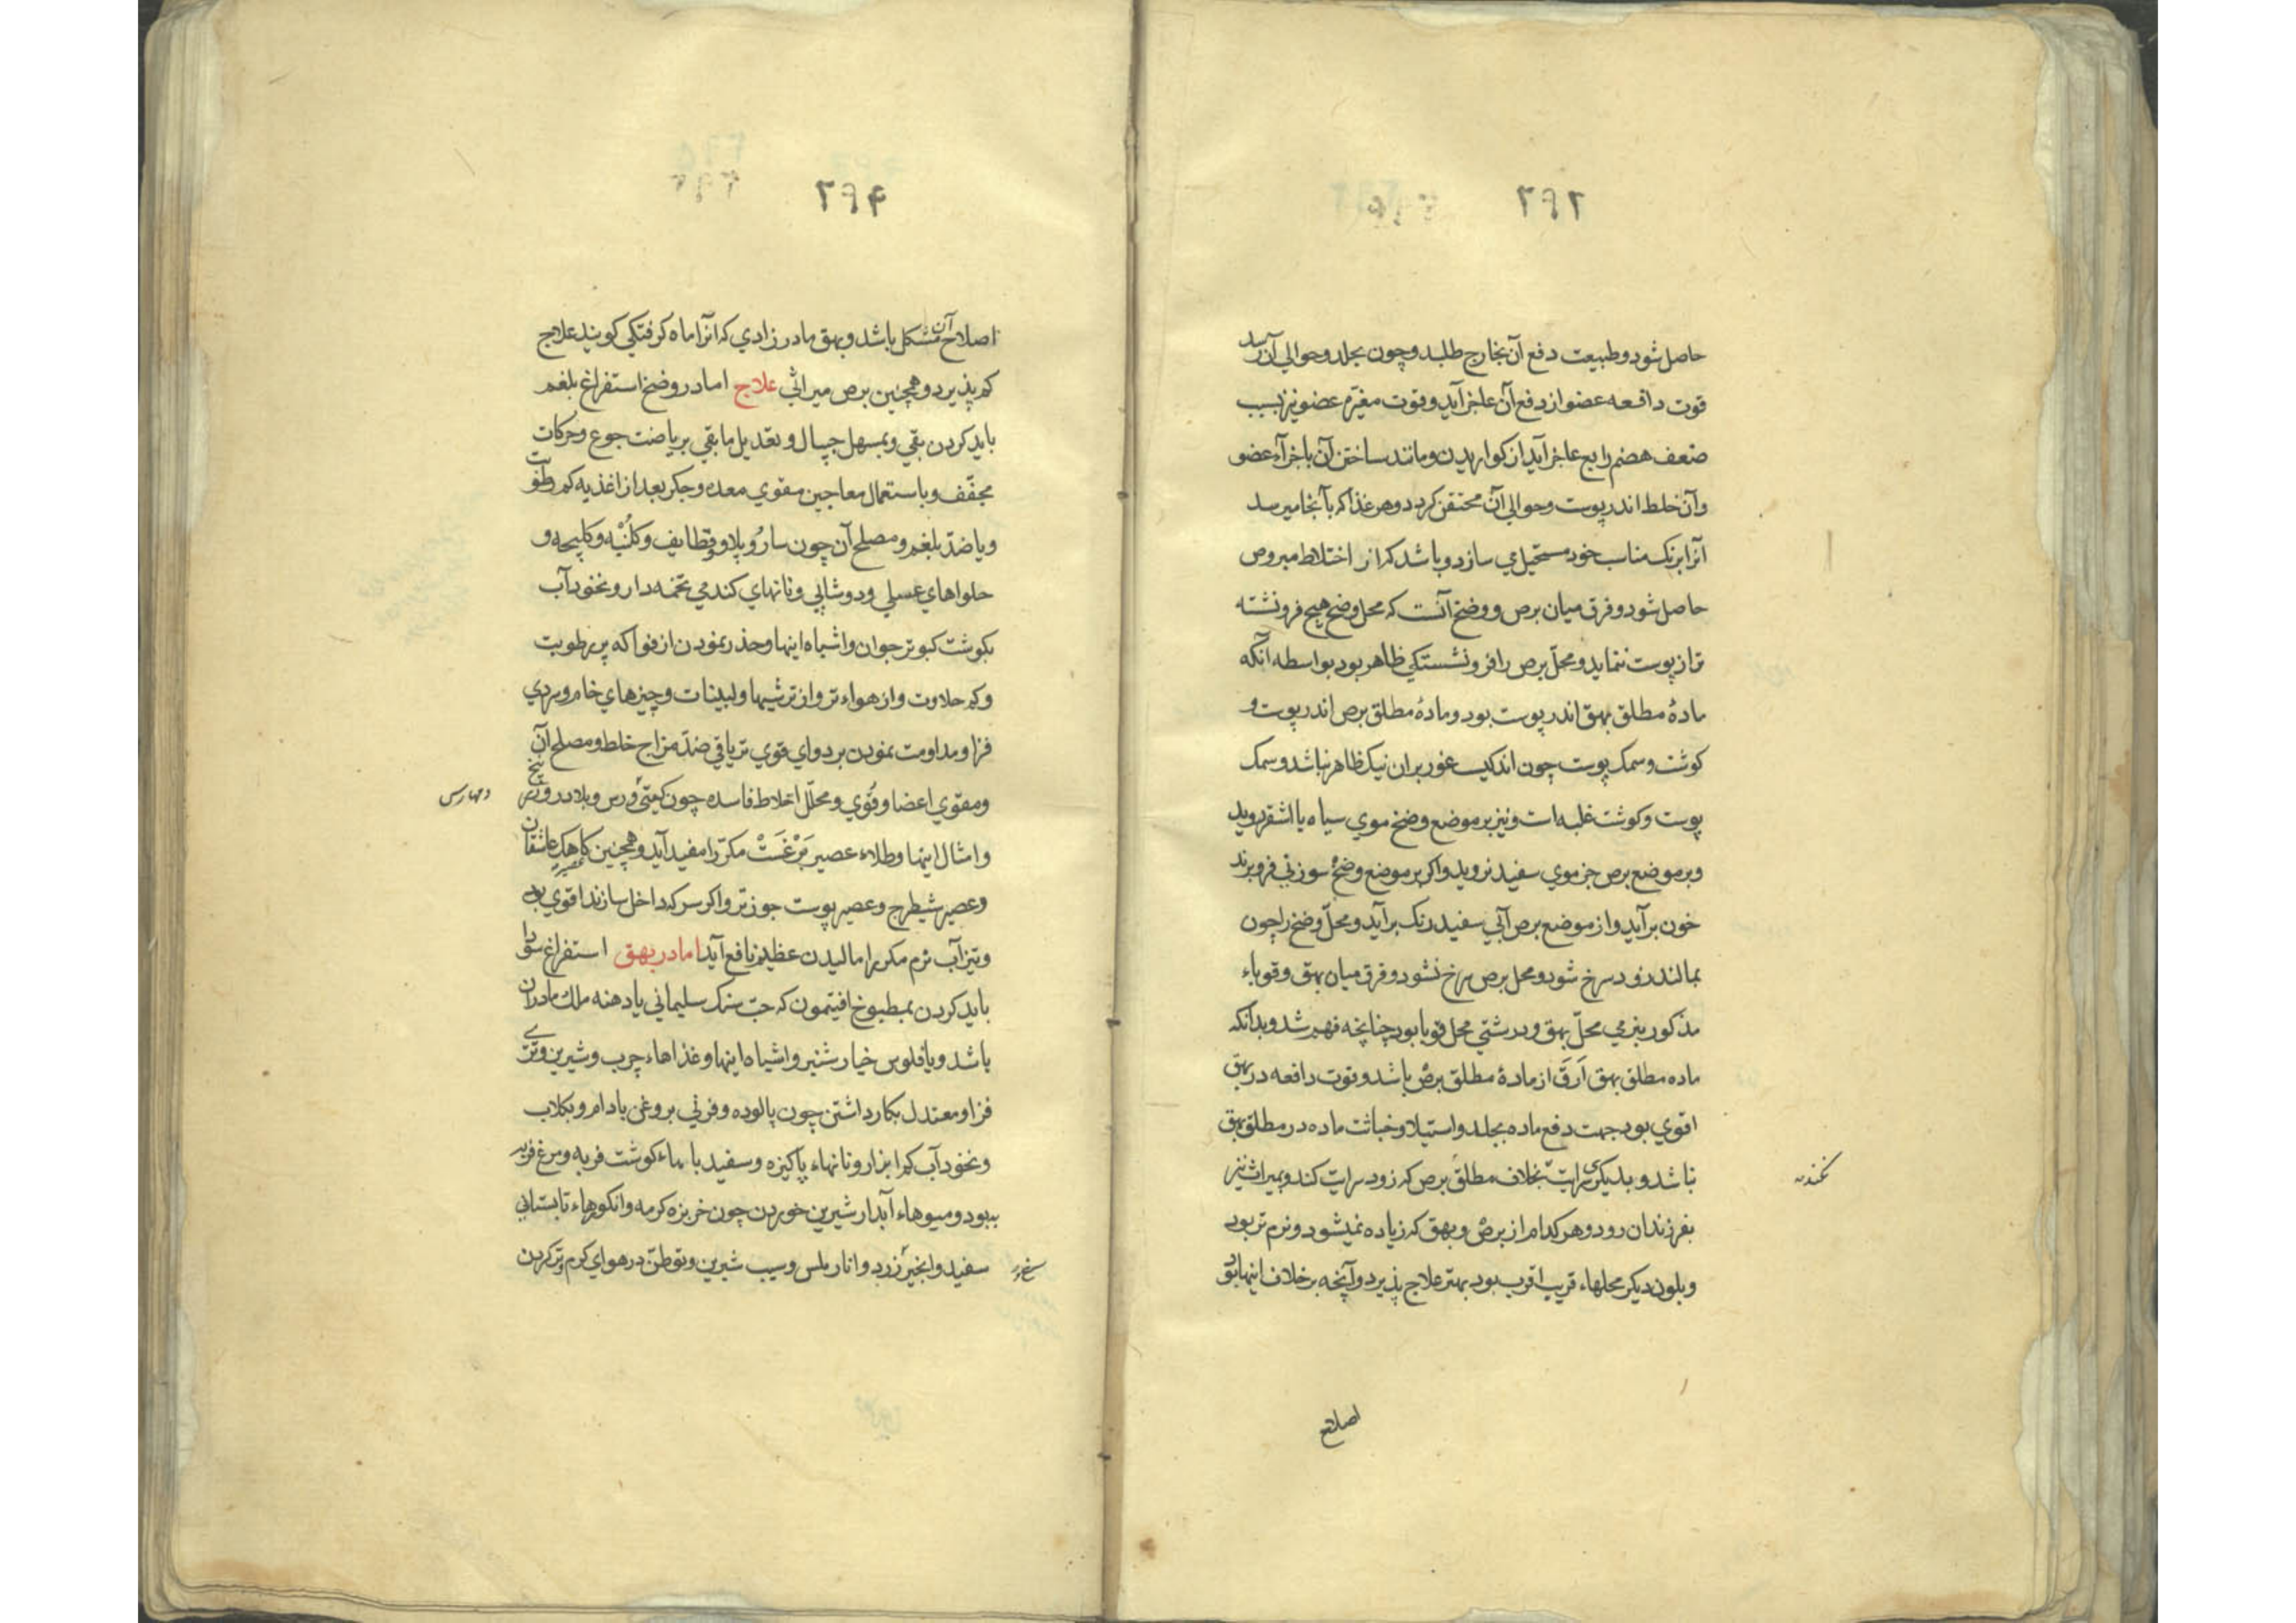 ۲۹۳
حاصل شود و طبیعت دفع آن بخارج طلبد و چون بجلد و حوالی آن رسد
قوت دافعه عضو از دفع آن عاجز آید و قوت مغیّره عضو نیز بسبب
ضعف هضم رابع عاجز آید از کواریدن و مانند ساختن آن باجزآء عضو
و آن خلط اندر پوست و حوالی آن محتقن کردد و هر غذا که بآنجا میرسد
آنرا برنک مناسب خود مستحیل می سازد و باشد که از اختلاط مبروص
حاصل شود و فرق میان برص و وضح آنست که محل وضح هیچ فرونشسته
تر از پوست ننماید و محلّ برص را فرونشستکی ظاهر بود بواسطه آنکه
مادهٔ مطلق بهق اندر پوست بود و مادهٔ مطلق برص اندر پوست و
کوشت و سمک پوست چون اندکیست غور بران نیک ظاهر نباشد و سمک
پوست و کوشت غلبه است و نیز بر موضع وضح موی سیاه یا اشقر روید
و بر موضع برص جز موی سفید نروید و اکر بر موضع وضح سوزنی فرو برند
خون برآید و از موضع برص آبی سفید رنک برآید و محلّ وضح را چون
بمالند زود سرخ شود و محل برص سرخ نشود و فرق میان بهق و قوباء
مذکور بنرمی محلّ بهق و درشتی محل قوبا بود چنانچه فهم شد و بدانکه
ماده مطلق بهق اَرَقّ از مادهٔ مطلق برص باشد و قوت دافعه در بهق
اقوی بود جهت دفع ماده بجلد و استیلا و خباثت ماده در مطلق بهق
نباشد و بدیکری سرایت بخلاف مطلق برص که زود سرایت کند و بمیراث نیز
نکند
بفرزندان رود و هر کدام از برص و بهق که زیاده نمیشود و نرم تر بود
و بلون دیکر محلهاء قریب اقرب بود بهتر علاج پذیرد و آنچه بر خلاف اینها بود
اصلاح
۲۹۴
اصلاح آن مشکل باشد و بهق مادرزادی که آنرا ماه کرفتکی کویند علاج
کم پذیرد و همچنین برص میراثی علاج اما در وضح استفراغ بلغم
باید کردن بقی و بمسهل جیبال و تعدیل مابقی بریاضت جوع و حرکات
مجفّف و باستعمال معاجین مقوی معده و جکر بعد از اغذیه کم رطوبت
و یا ضدّ بلغم و مصلح آن چون سار و پلاو و قطایف و کلنبه و کلیچه و
حلواهای عسلی و دوشابی و نانهای کندمی تخمه دار و نخودآب
بکوشت کبوتر جوان و اشباه اینها و حذر نمودن از فواکه پر رطوبت
و کم حلاوت و از هواء تر و از ترشیها و لبنیات و چیزهای خام و سردی
فزا و مداومت نمودن بر دوای قوی تریاقی ضدّ مزاج خلط و مصلح آن
و مقوی اعضا و قوی و محلّل اخلاط فاسده چون و بلادر و زرنیخ
و امثال اینها و طلاء عصیر بَرْغَسْت مکرّر مفید آید و همچنین عاشقان
و عصیر شیطرج و عصیر پوست جوز تر و اکر سرکه داخل سازند اقوی بود
و تیزآب نرم مکرر مالیدن عظیم نافع آید اما در بهق استفراغ سودا
باید کردن بمطبوخ افتیمون که حبّ سنک سلیمانی یا دهنه ملک مادران
باشد و یا فلوس خیارشنبر و اشباه اینها و غذاهاء چرب و شیرین و تری
فزا و معتدل بکار داشتن چون پالوده و فرنی بروغن بادام و بکلاب
و نخودآب کم ابزار و نانهاء پاکیزه و سفید با ماء کوشت فربه و مرغ فربه
بهبود و میوهاء آبدار شیرین خوردن چون خربزه کرمه و انکورهاء تابستانی
سفید و انجیر زرد و انار ملس و سیب شیرین و توطن در هوای کرم و تر کردن